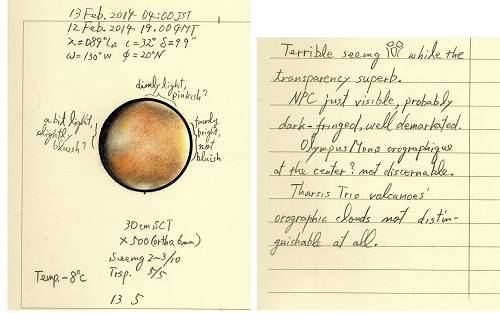 13 Feb. 2014 04:00 JST
12 Feb. 2014 19:00 GMT
λ=089°Ls ι=32° δ=9.9"
ω=130°W φ=20°N
dimly light,
pinkish?
a bit light,
slightly
bluish?
fairly
bright,
not
bluish
30cm SCT
×500 (ortho, 6mm)
Seeing 2~3/10
Trsp. 5/5
Temp. -8°C
13 5
Terrible seeing while the
transparency superb.
NPC just visible, probably
dark-fringed, well demarkated.
Olympus Mons orographique
at the center? not discernable.
Tharsis Trio volcanoes'
orographic clouds not distin-
guishable at all.